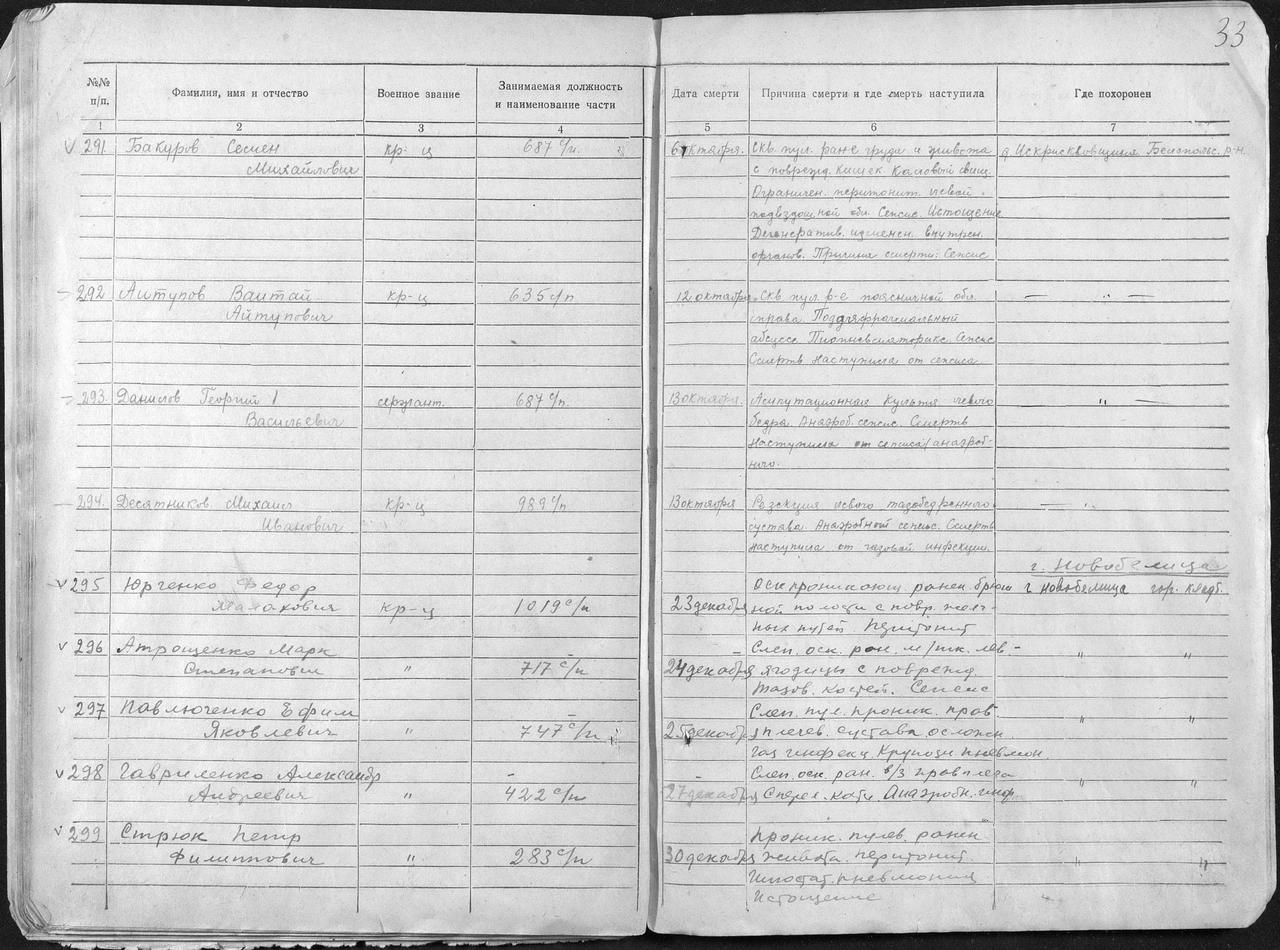 33
№№ п/п.
Фамилия, имя и отчество
Военное звание
Занимаемая должность и наименование части
Дата смерти
Причина смерти и где смерть наступила
Где похоронен
1 2 3 4 5 6 7
291. Бакуров Семен кр-ц 687 с/п. 6 октября. Скв. пул. ран-е груди и живота д. Искрисковщина Белопольс. р-н.
Михайлович с поврежд. кишек. Каловый свищ.
Ограничен. перитонит левой
подвздошной обл. Сепсис. Истощение
Дегенератив. изменен. внутрен.
органов. Причина смерти: Сепсис
292 Айтупов Ваитай кр-ц 635 с/п 12 октября. Скв. пул. р-е поясничной обл. — " —
Айтупович справа. Поддиафрагмальный
абсцесс. Сепсис.
Смерть наступила от сепсиса
293. Данилов Георгий сержант. 687 с/п. 13 октября. Ампутационная культя левого " —
Васильевич бедра. Анаэроб. сепсис. Смерть
наступила от сепсиса /анаэроб-
ного.
294. Десятников Михаил кр-ц 989 с/п 13 октября Резекция левого тазобедренного — "
Иванович сустава. Анаэробный сепсис. Смерть
наступила от газовой инфекции.
г. Новобелица
295 Юрченко Федор Оск. проникающ. ранен. брюш г. Новобелица гор. кладб.
Малахович кр-ц 1019 с/п 23 декабря ной полости с повр. желч-
ных путей. Перитонит
296 Атрощенко Марк – Слеп. оск. ран. м/тк. лев- " "
Степанович " 717 с/п 24 декабря ягодицы с поврежд.
тазов. костей. Сепсис
297 Павлюченко Ефим – Слеп. пул. проник. прав. " "
Яковлевич " 747 с/п 25 декабря плечев. сустава осложн.
газ. инфекц. Крупозн. пневмон.
298 Гавриленко Александр – – Слеп. оск. ран. в/з прав плеча " "
Андреевич " 422 с/п 27 декабря С перел. кости. Анаэробн. инф.
299 Стрюк Петр Проник. пулев. ранен
Филиппович " 283 с/п 30 декабря живота. перитонит " "
Гипостат. пневмония
Истощение